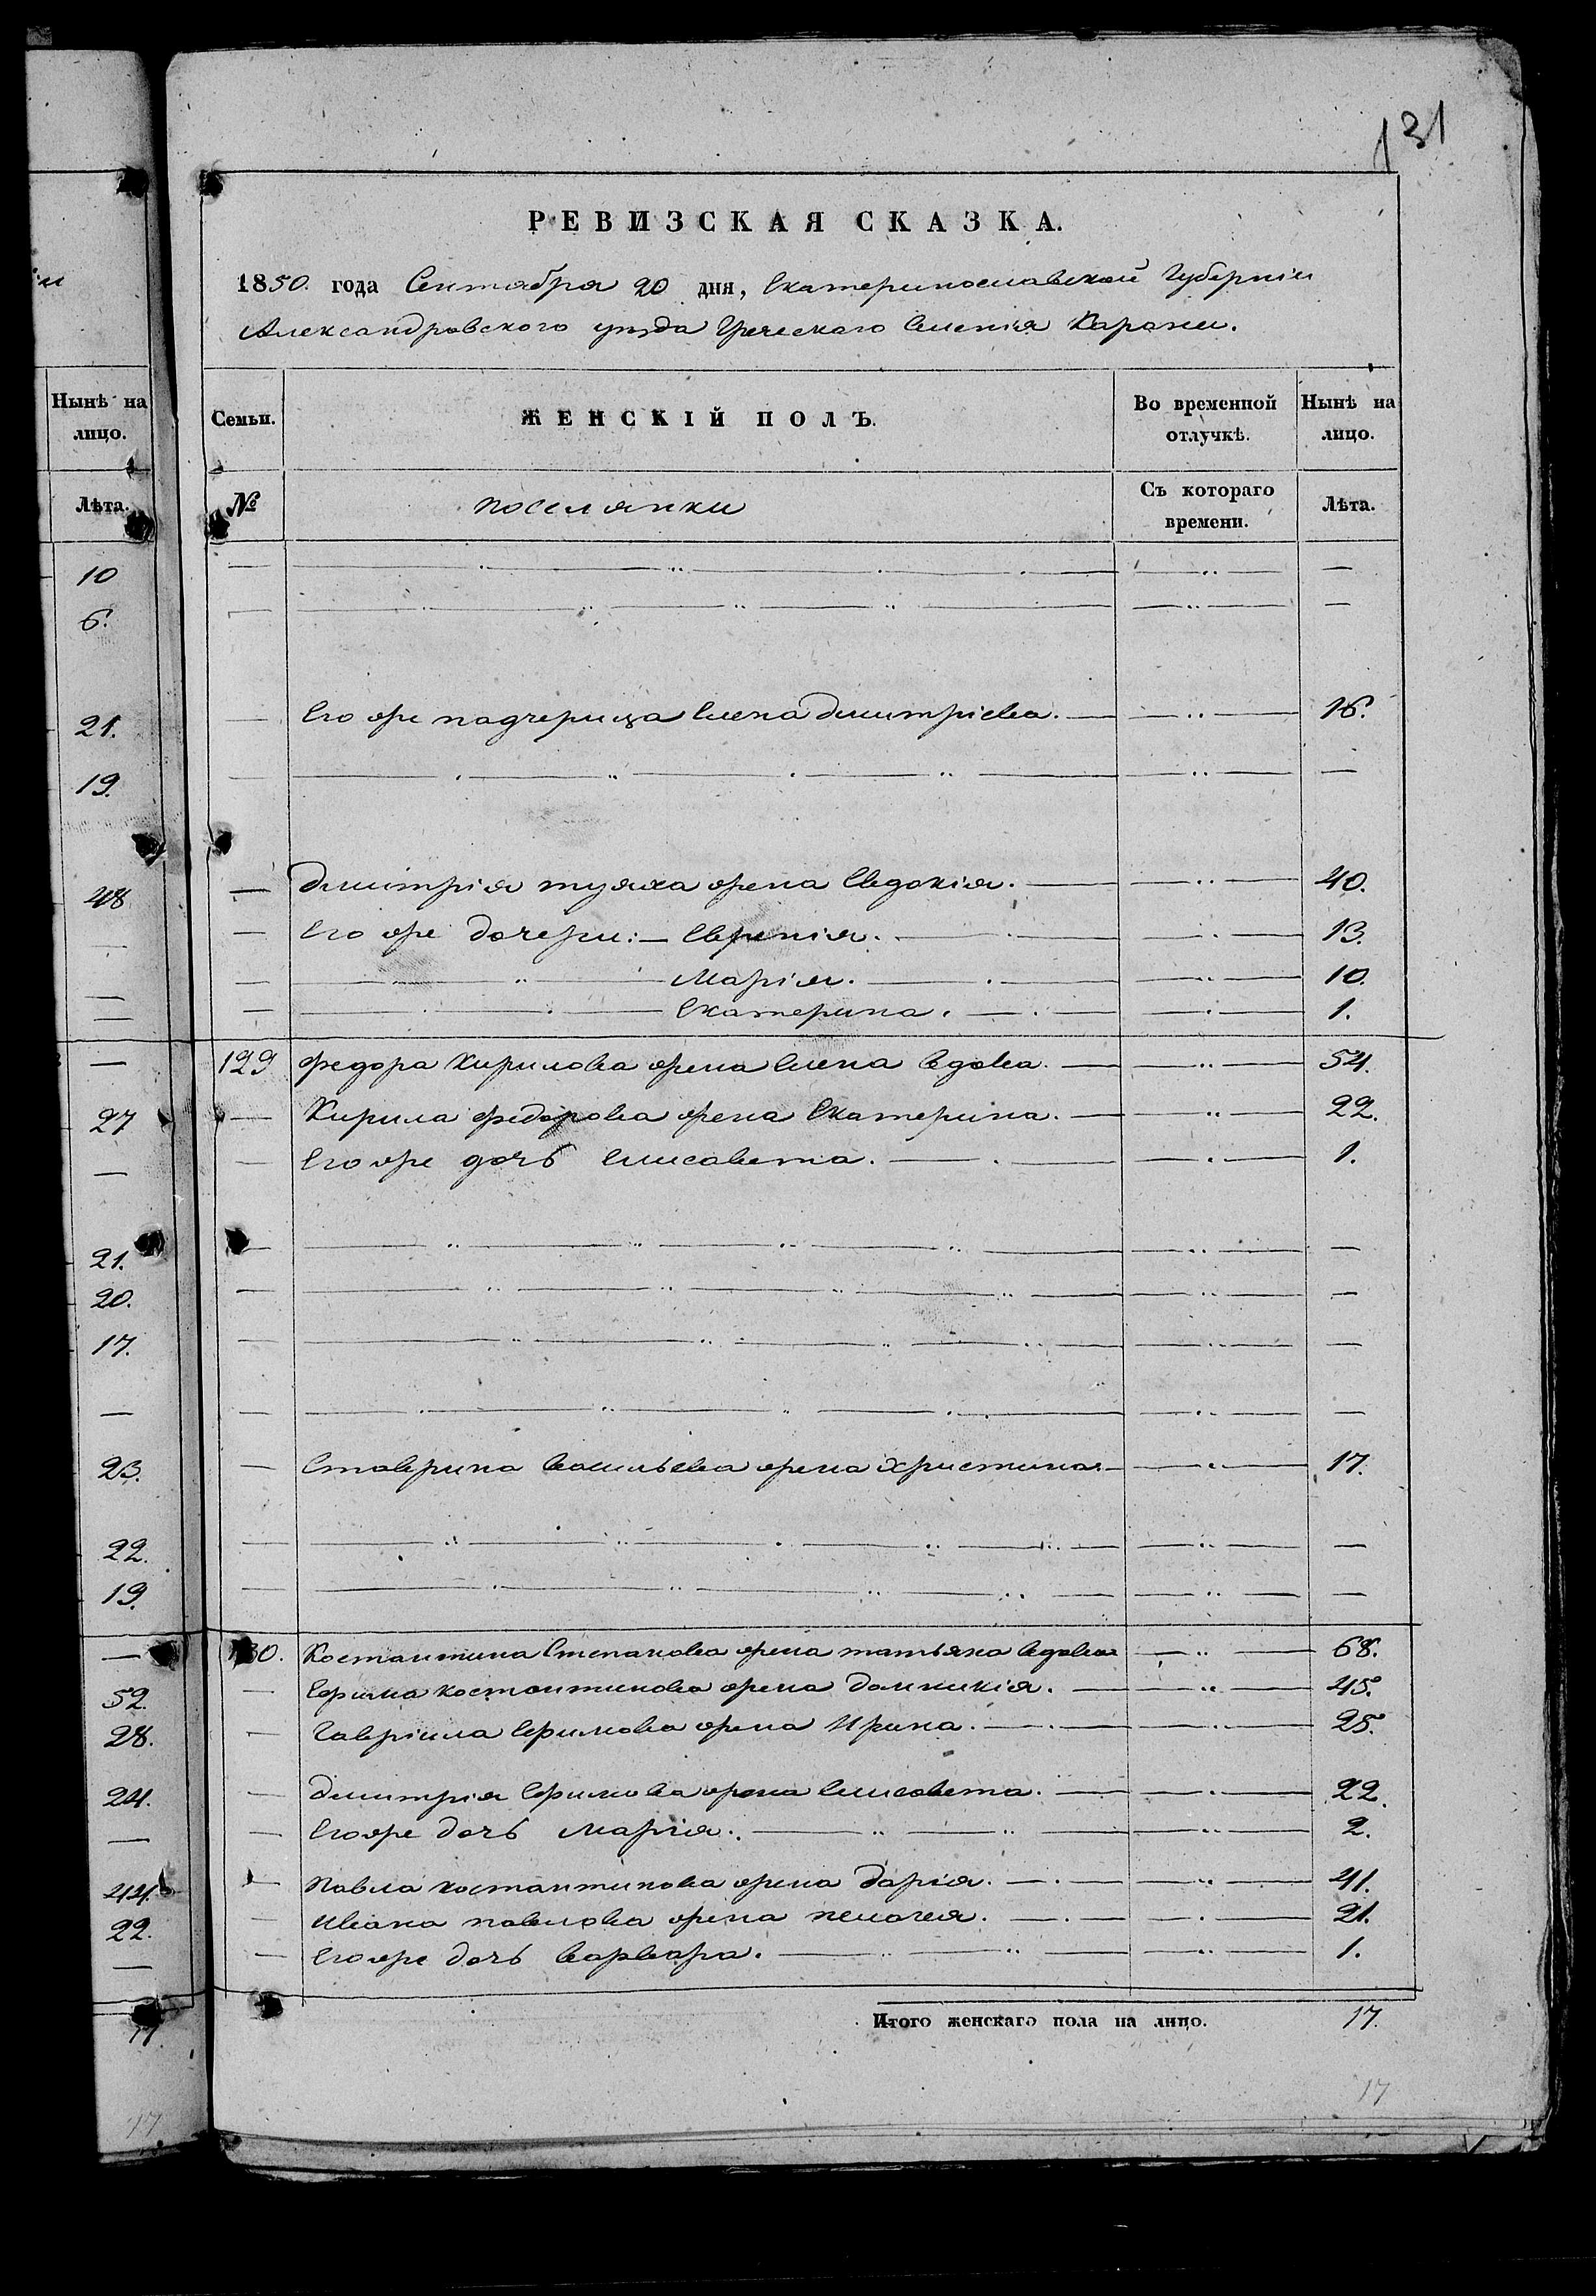 131
РЕВИЗСКАЯ СКАЗКА.
1850. года Сентября 20 дня, Екатеринославской Губерніи
Александровского уѣзда Греческаго Селенія Карани.
Нынѣ на лицо.
Лѣта.
10
6.
21.
19.
48
—
—
—
—
27
—
21.
20.
17.
—
23.
22.
19.
—
52.
28.
24.
—
44.
22.
—
17
17
Семьи. ЖЕНСКІЙ ПОЛЪ. Во временной отлучкѣ. Нынѣ на лицо.
№ поселянки Съ котораго времени. Лѣта.
— — — —
— — — —
— Его же падчерица Елена Димитріева. — — 16.
— — — —
— Димитрія жена Евдокія. — — 40.
— Его же дочери: — — 13.
— — Марія. — — 10.
— — Екатерина. — — 1.
129 Федора Кирилова жена Елена вдова. — — 54.
— Кирила Федорова жена Екатерина. — — 22.
— Его же дочь Елисавета. — — 1.
— — — —
— — — —
— — — —
— — — —
— Ставрина Васильева жена Христина. — — 17.
— — — —
— — — —
130. Костантина Степанова жена татьяна вдова — 68.
— Ефима костантинова жена Домникія. — — 45.
— Гавріила Ефимова жена Ирина. — — 25.
— Димитрія Ефимова жена Елисавета. — — 22.
— Его же дочь Марія. — — 2.
— Павла костантинова жена Дарія. — — 41.
— Ивана павлова жена пелагея. — — 21.
— Его же дочь Варвара. — — 1.
Итого женскаго пола на лицо. 17.
17